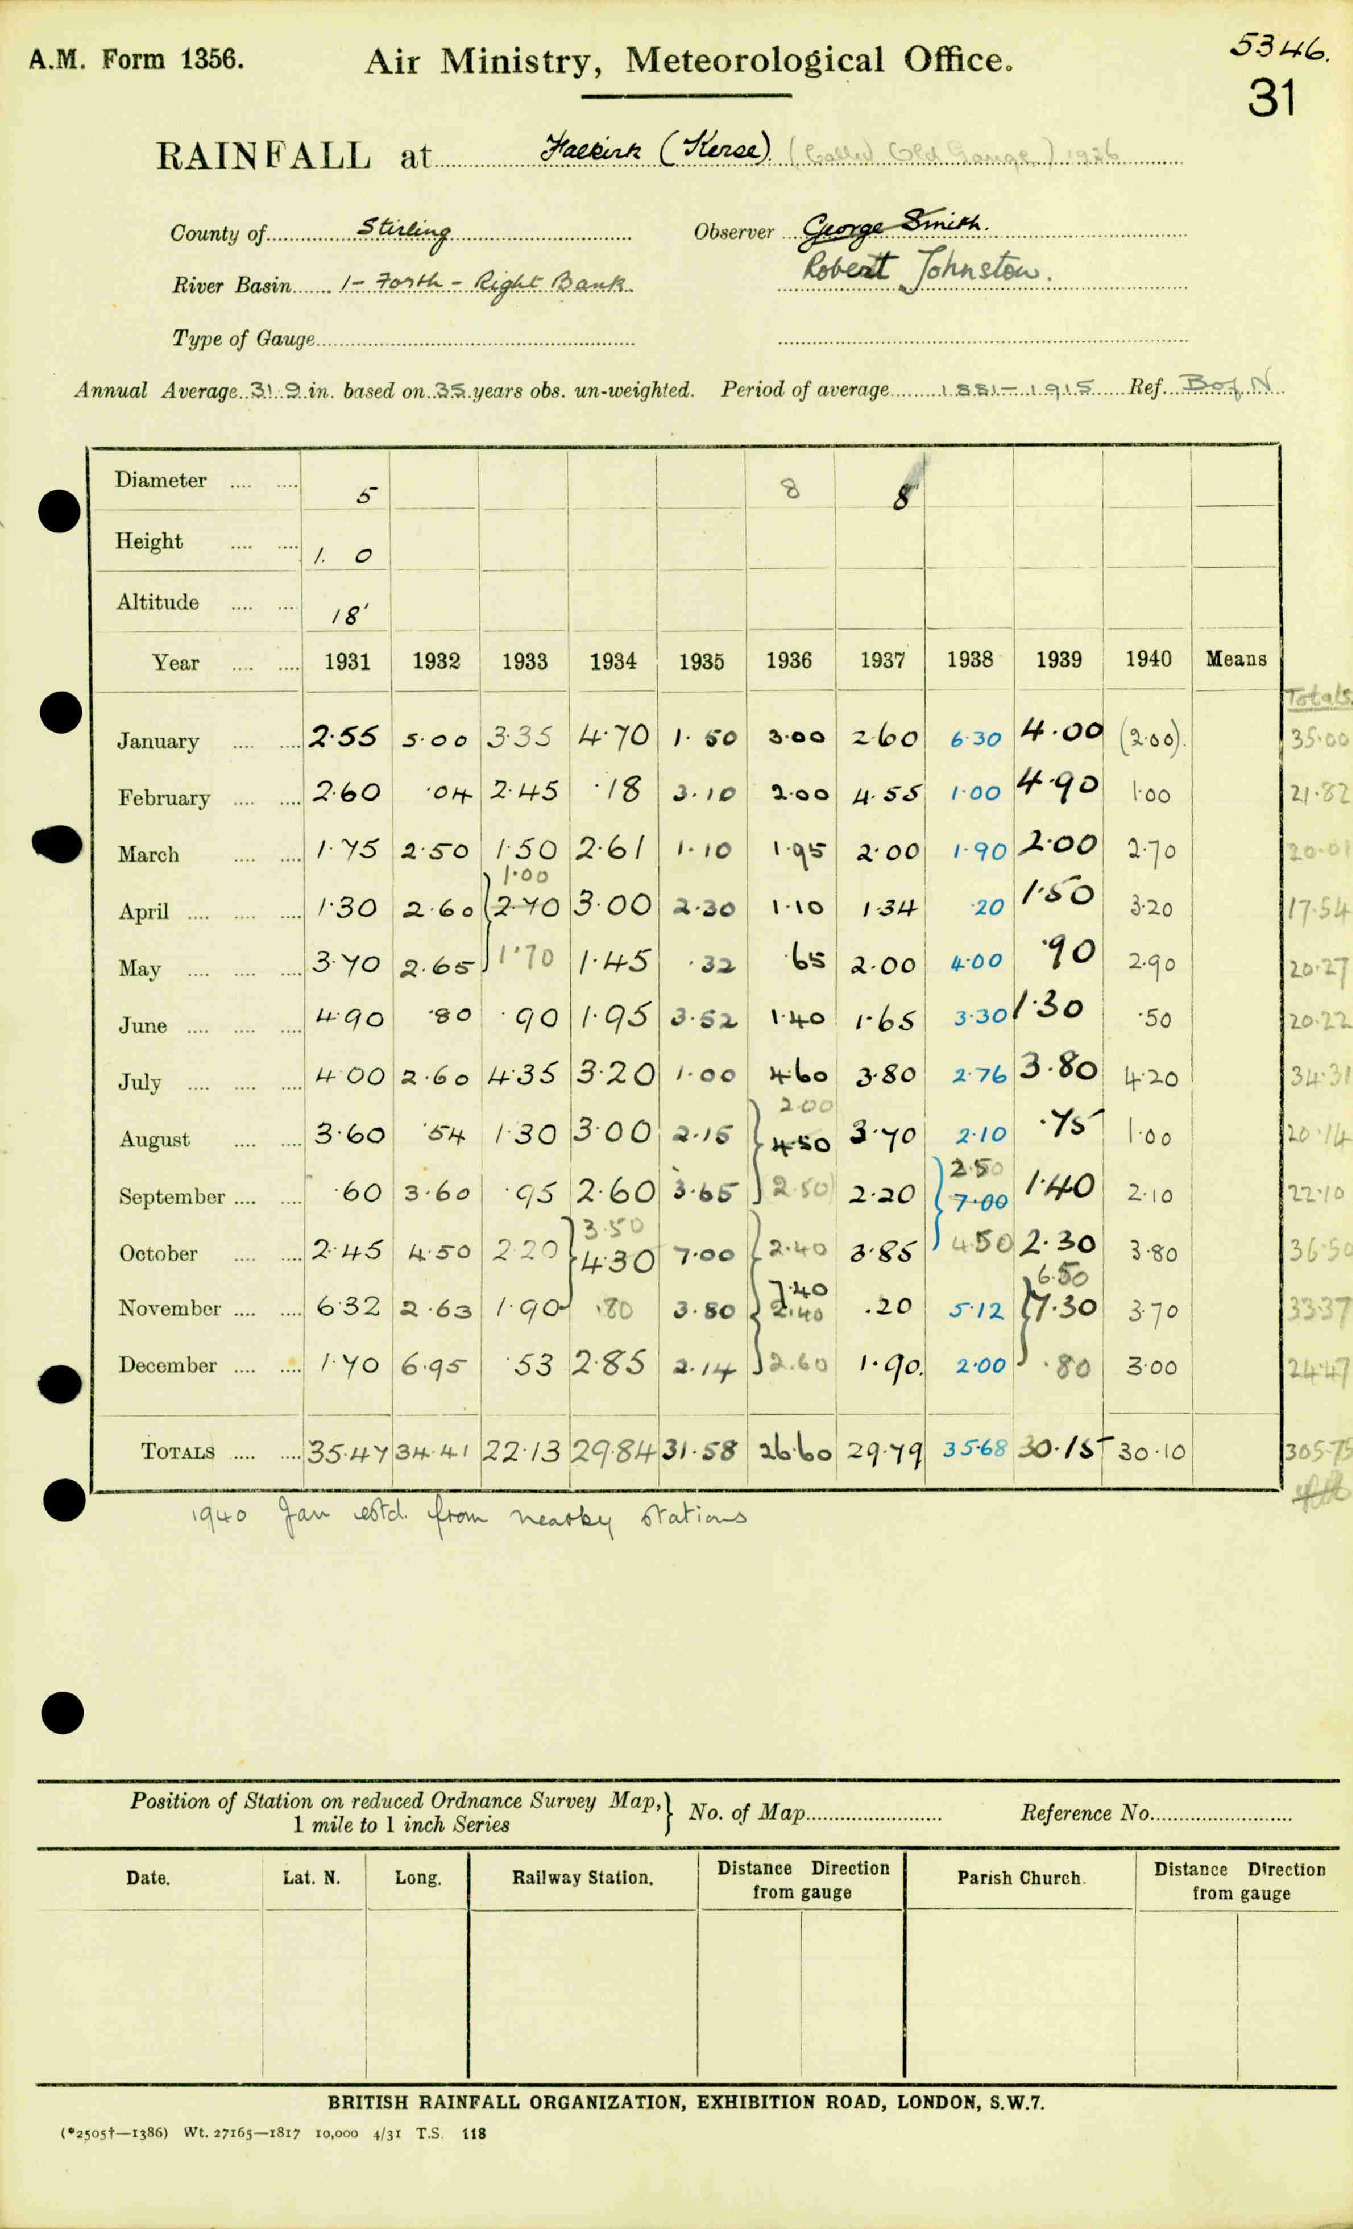 A.M. Form 1356.
Air Ministry, Meteorological Office.
5346.
31
RAINFALL at Falkirk (Kerse). (Called Old Gauge) 1936
County of Stirling Observer George Smith.
River Basin 1 - Forth - Right Bank Robert Johnston.
Type of Gauge
Annual Average 31.9 in. based on 35 years obs. un-weighted. Period of average 1881-1915 Ref. B of N
Diameter .... .... 5 8 8
Height .... .... 1. 0
Altitude .... .... 18'
Year .... .... 1931 1932 1933 1934 1935 1936 1937 1938 1939 1940 Means
Totals
January .... .... 2.55 5.00 3.35 4.70 1.50 3.00 2.60 6.30 4.00 (2.00). 35.00
February .... .... 2.60 .04 2.45 .18 3.10 2.00 4.55 1.00 4.90 1.00 21.82
March .... .... 1.75 2.50 1.50 2.61 1.10 1.95 2.00 1.90 2.00 2.70 20.01
1.00
April .... .... .... 1.30 2.60 2.70 3.00 2.30 1.10 1.34 .20 1.50 3.20 17.54
May .... .... .... 3.70 2.65 1.70 1.45 .32 .65 2.00 4.00 .90 2.90 20.27
June .... .... .... 4.90 .80 .90 1.95 3.52 1.40 1.65 3.30 1.30 .50 20.22
July .... .... .... 4.00 2.60 4.35 3.20 1.00 4.60 3.80 2.76 3.80 4.20 34.31
2.00
August .... .... 3.60 .54 1.30 3.00 2.15 4.50 3.70 2.10 .75 1.00 20.14
2.50
September .... .... .60 3.60 .95 2.60 3.65 2.50 2.20 7.00 1.40 2.10 22.10
3.50
October .... .... 2.45 4.50 2.20 4.30 7.00 2.40 3.85 4.50 2.30 3.80 36.50
7.40 6.50
November .... .... 6.32 2.63 1.90 .80 3.80 2.40 .20 5.12 7.30 3.70 33.37
December .... .... 1.70 6.95 .53 2.85 2.14 2.60 1.90. 2.00 .80 3.00 24.47
TOTALS .... .... 35.47 34.41 22.13 29.84 31.58 26.60 29.79 35.68 30.15 30.10 305.75
1940 Jan estd. from nearby stations
Position of Station on reduced Ordnance Survey Map,} No. of Map Reference No.
1 mile to 1 inch Series
Date. Lat. N. Long. Railway Station. Distance Direction from gauge Parish Church. Distance Direction from gauge
BRITISH RAINFALL ORGANIZATION, EXHIBITION ROAD, LONDON, S.W.7.
(*2505†—1386) Wt. 27165—1817 10,000 4/31 T.S. 118